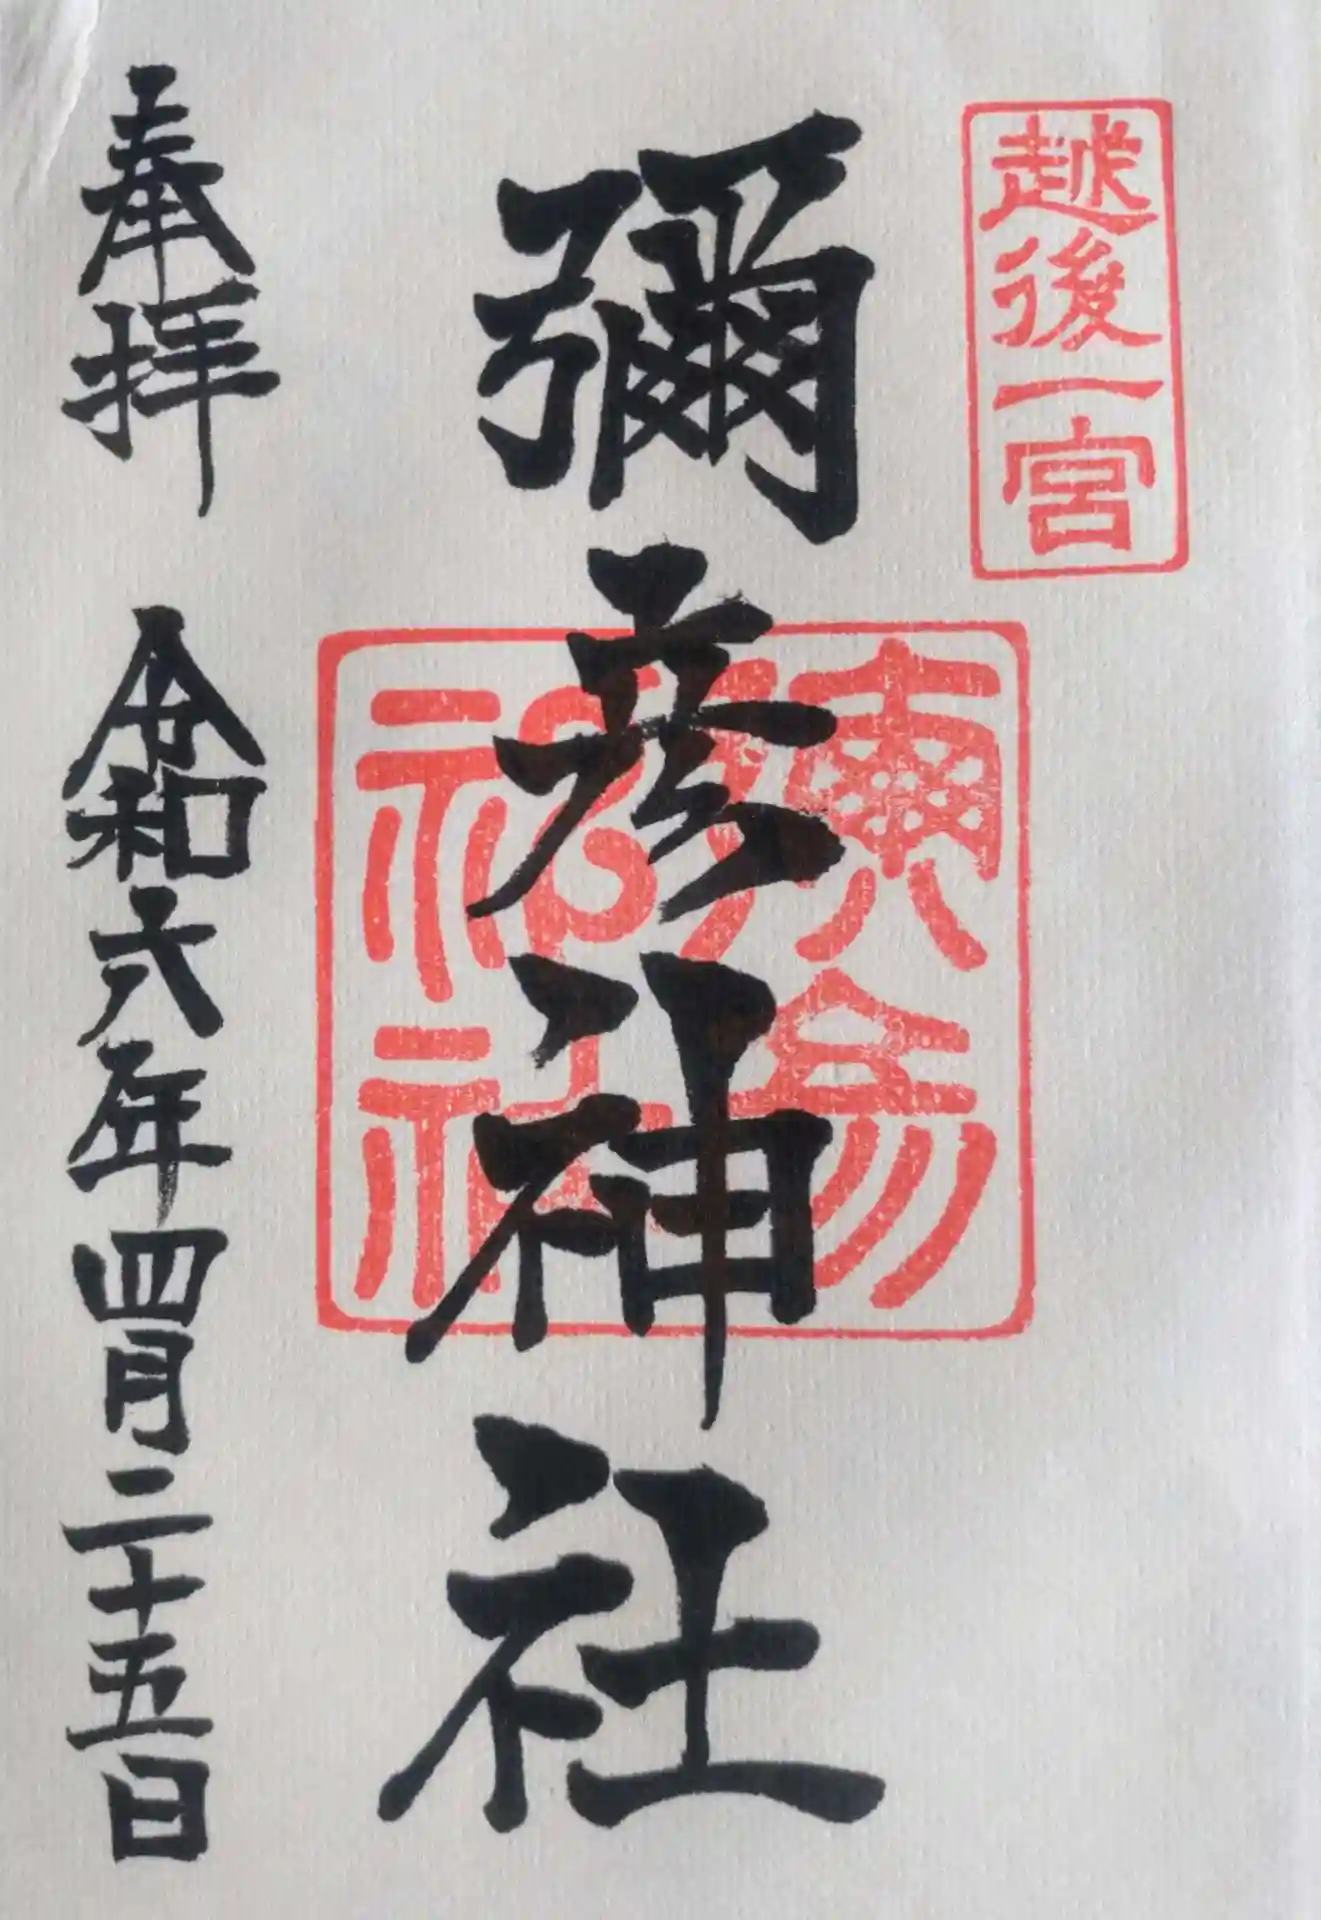 越後一宮
彌彦神社
彌彦神社
奉拝 令和六年四月二十五日